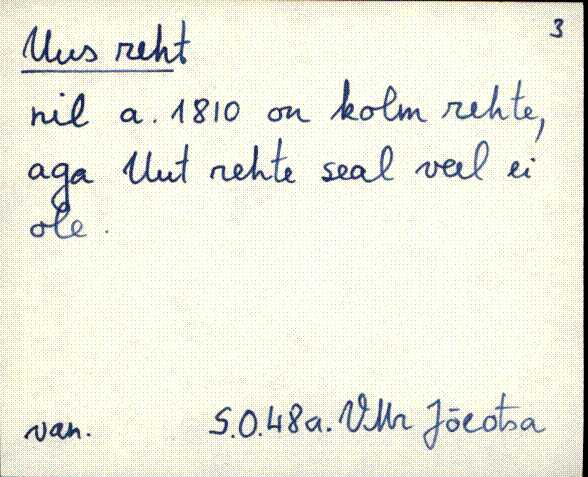 3
Uus reht
nil a. 1810 on kolm rehte,
aga Uut rehte seal veel ei
ole.
van. S.O.48a. VMr Jõeotsa